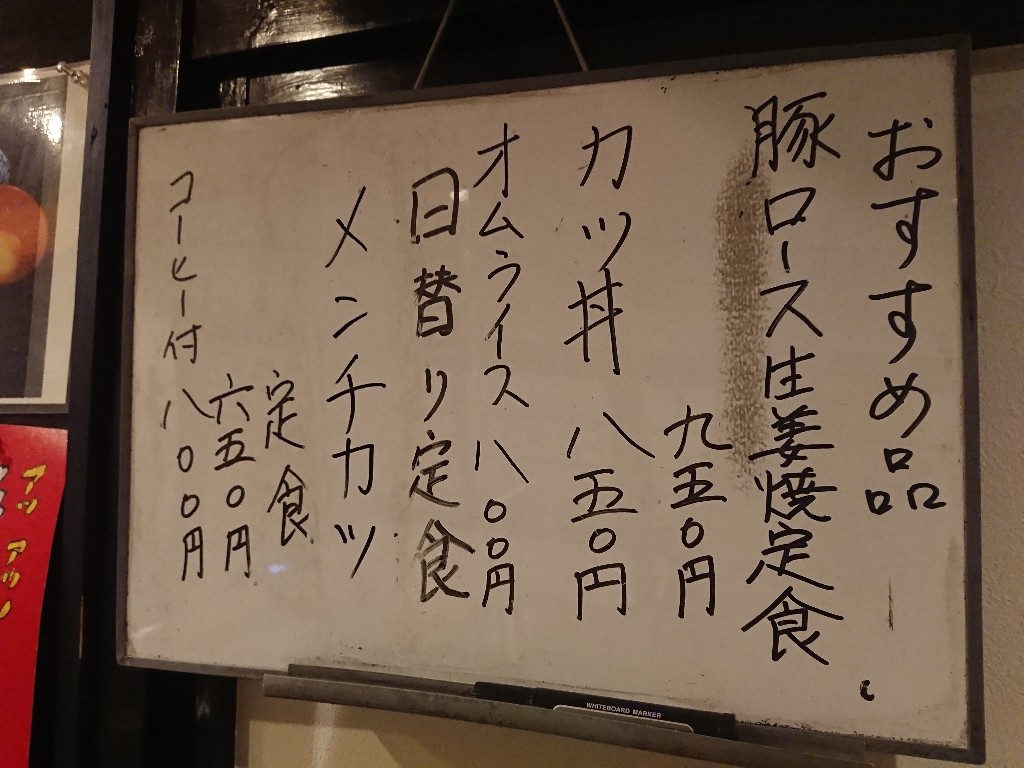 おすすめ品
豚ロース生姜焼定食
九五〇円
カツ丼 八五〇円
オムライス 八〇〇円
日替り定食
メンチカツ
定食
六五〇円
コーヒー付 八〇〇円
アツ アツ
WHITEBOARD MARKER